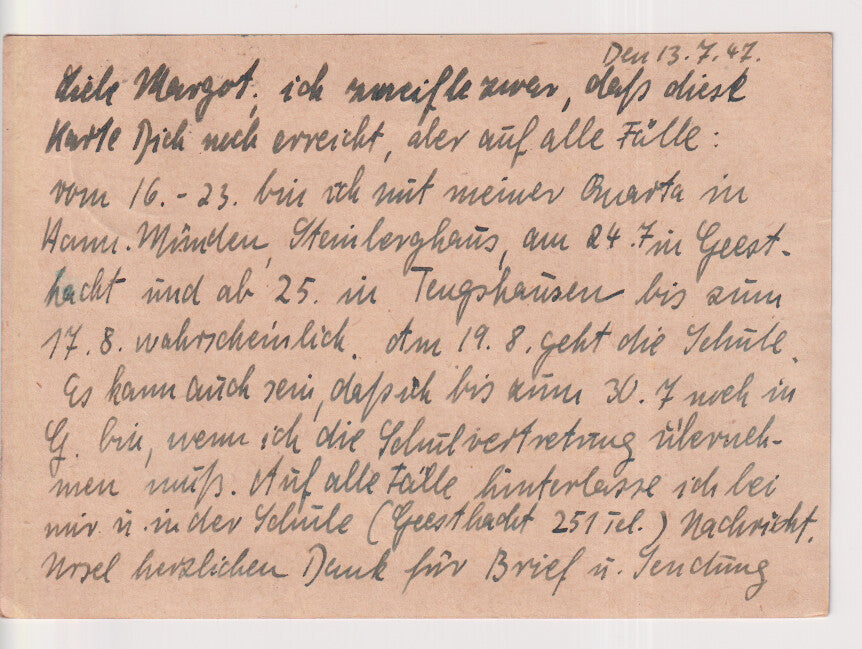 Den 13.7.47.
Liebe Margot, ich zweifle zwar, daß diese
Karte Dich noch erreicht, aber auf alle Fälle:
vom 16.-23. bin ich mit meiner Quarta in
Hann. Münden, Steinberghaus, am 24.7 in Geest-
hacht und ab 25. in Tengshausen bis zum
17.8. wahrscheinlich. Am 19.8. geht die Schule.
Es kann auch sein, daß ich bis zum 30.7 noch in
G. bin, wenn ich die Schulvertretung überneh-
men muß. Auf alle Fälle hinterlasse ich bei
mir u. in der Schule (Geesthacht 251 Tel.) Nachricht.
Ursel herzlichen Dank für Brief u. Sendung